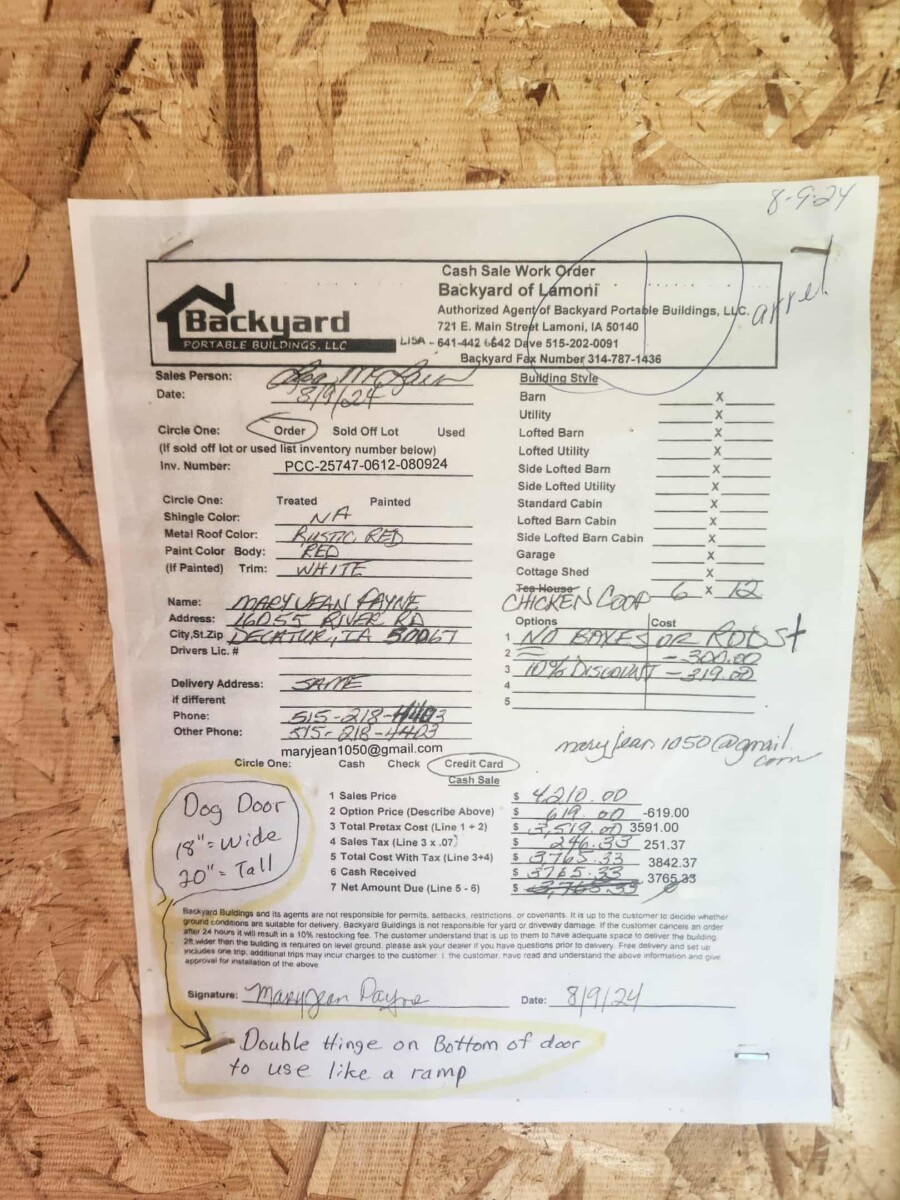 8-9-24
Cash Sale Work Order
Backyard of Lamoni
Authorized Agent of Backyard Portable Buildings, LLC.
721 E. Main Street Lamoni, IA 50140
LISA - 641-442 6642 Dave 515-202-0091
Backyard Fax Number 314-787-1436
Backyard
PORTABLE BUILDINGS, LLC
Sales Person:
Date: 8/9/24
Circle One: Order Sold Off Lot Used
(If sold off lot or used list inventory number below)
Inv. Number: PCC-25747-0612-080924
Circle One: Treated Painted
Shingle Color: NA
Metal Roof Color: RUSTIC RED
Paint Color Body: RED
(If Painted) Trim: WHITE
Name: MARY JEAN PAYNE
Address: 16055 RIVER RD
City,St.Zip DECATUR, IA 50067
Drivers Lic. #
Delivery Address: SAME
if different
Phone: 515-218-4403
Other Phone: 515-218-4403
maryjean1050@gmail.com
Building Style
Barn X
Utility X
Lofted Barn X
Lofted Utility X
Side Lofted Barn X
Side Lofted Utility X
Standard Cabin X
Lofted Barn Cabin X
Side Lofted Barn Cabin X
Garage X
Cottage Shed X
Tea House 6 X 12
CHICKEN COOP
Options Cost
1 NO BOXES OR ROOST
2 -300.00
3 10% DISCOUNT -319.00
4
5
maryjean1050@gmail.
com
Circle One: Cash Check Credit Card
Cash Sale
1 Sales Price $ 4,210.00
2 Option Price (Describe Above) $ 619.00 -619.00
3 Total Pretax Cost (Line 1 + 2) $ 3,519.00 3591.00
4 Sales Tax (Line 3 x .07) $ 246.33 251.37
5 Total Cost With Tax (Line 3+4) $ 3765.33 3842.37
6 Cash Received $ 3765.33 3765.33
7 Net Amount Due (Line 5 - 6) $ 3,765.33
Dog Door
18" = Wide
20" = Tall
Backyard Buildings and its agents are not responsible for permits, setbacks, restrictions, or covenants. It is up to the customer to decide whether
ground conditions are suitable for delivery. Backyard Buildings is not responsible for yard or driveway damage. If the customer cancels an order
after 24 hours it will result in a 10% restocking fee. The customer understand that is up to them to have adequate space to deliver the building.
2ft wider than the building is required on level ground, please ask your dealer if you have questions prior to delivery. Free delivery and set up
includes one trip, additional trips may incur charges to the customer. I, the customer, have read and understand the above information and give
approval for installation of the above
Signature: MaryJean Payne Date: 8/9/24
Double Hinge on Bottom of door
to use like a ramp